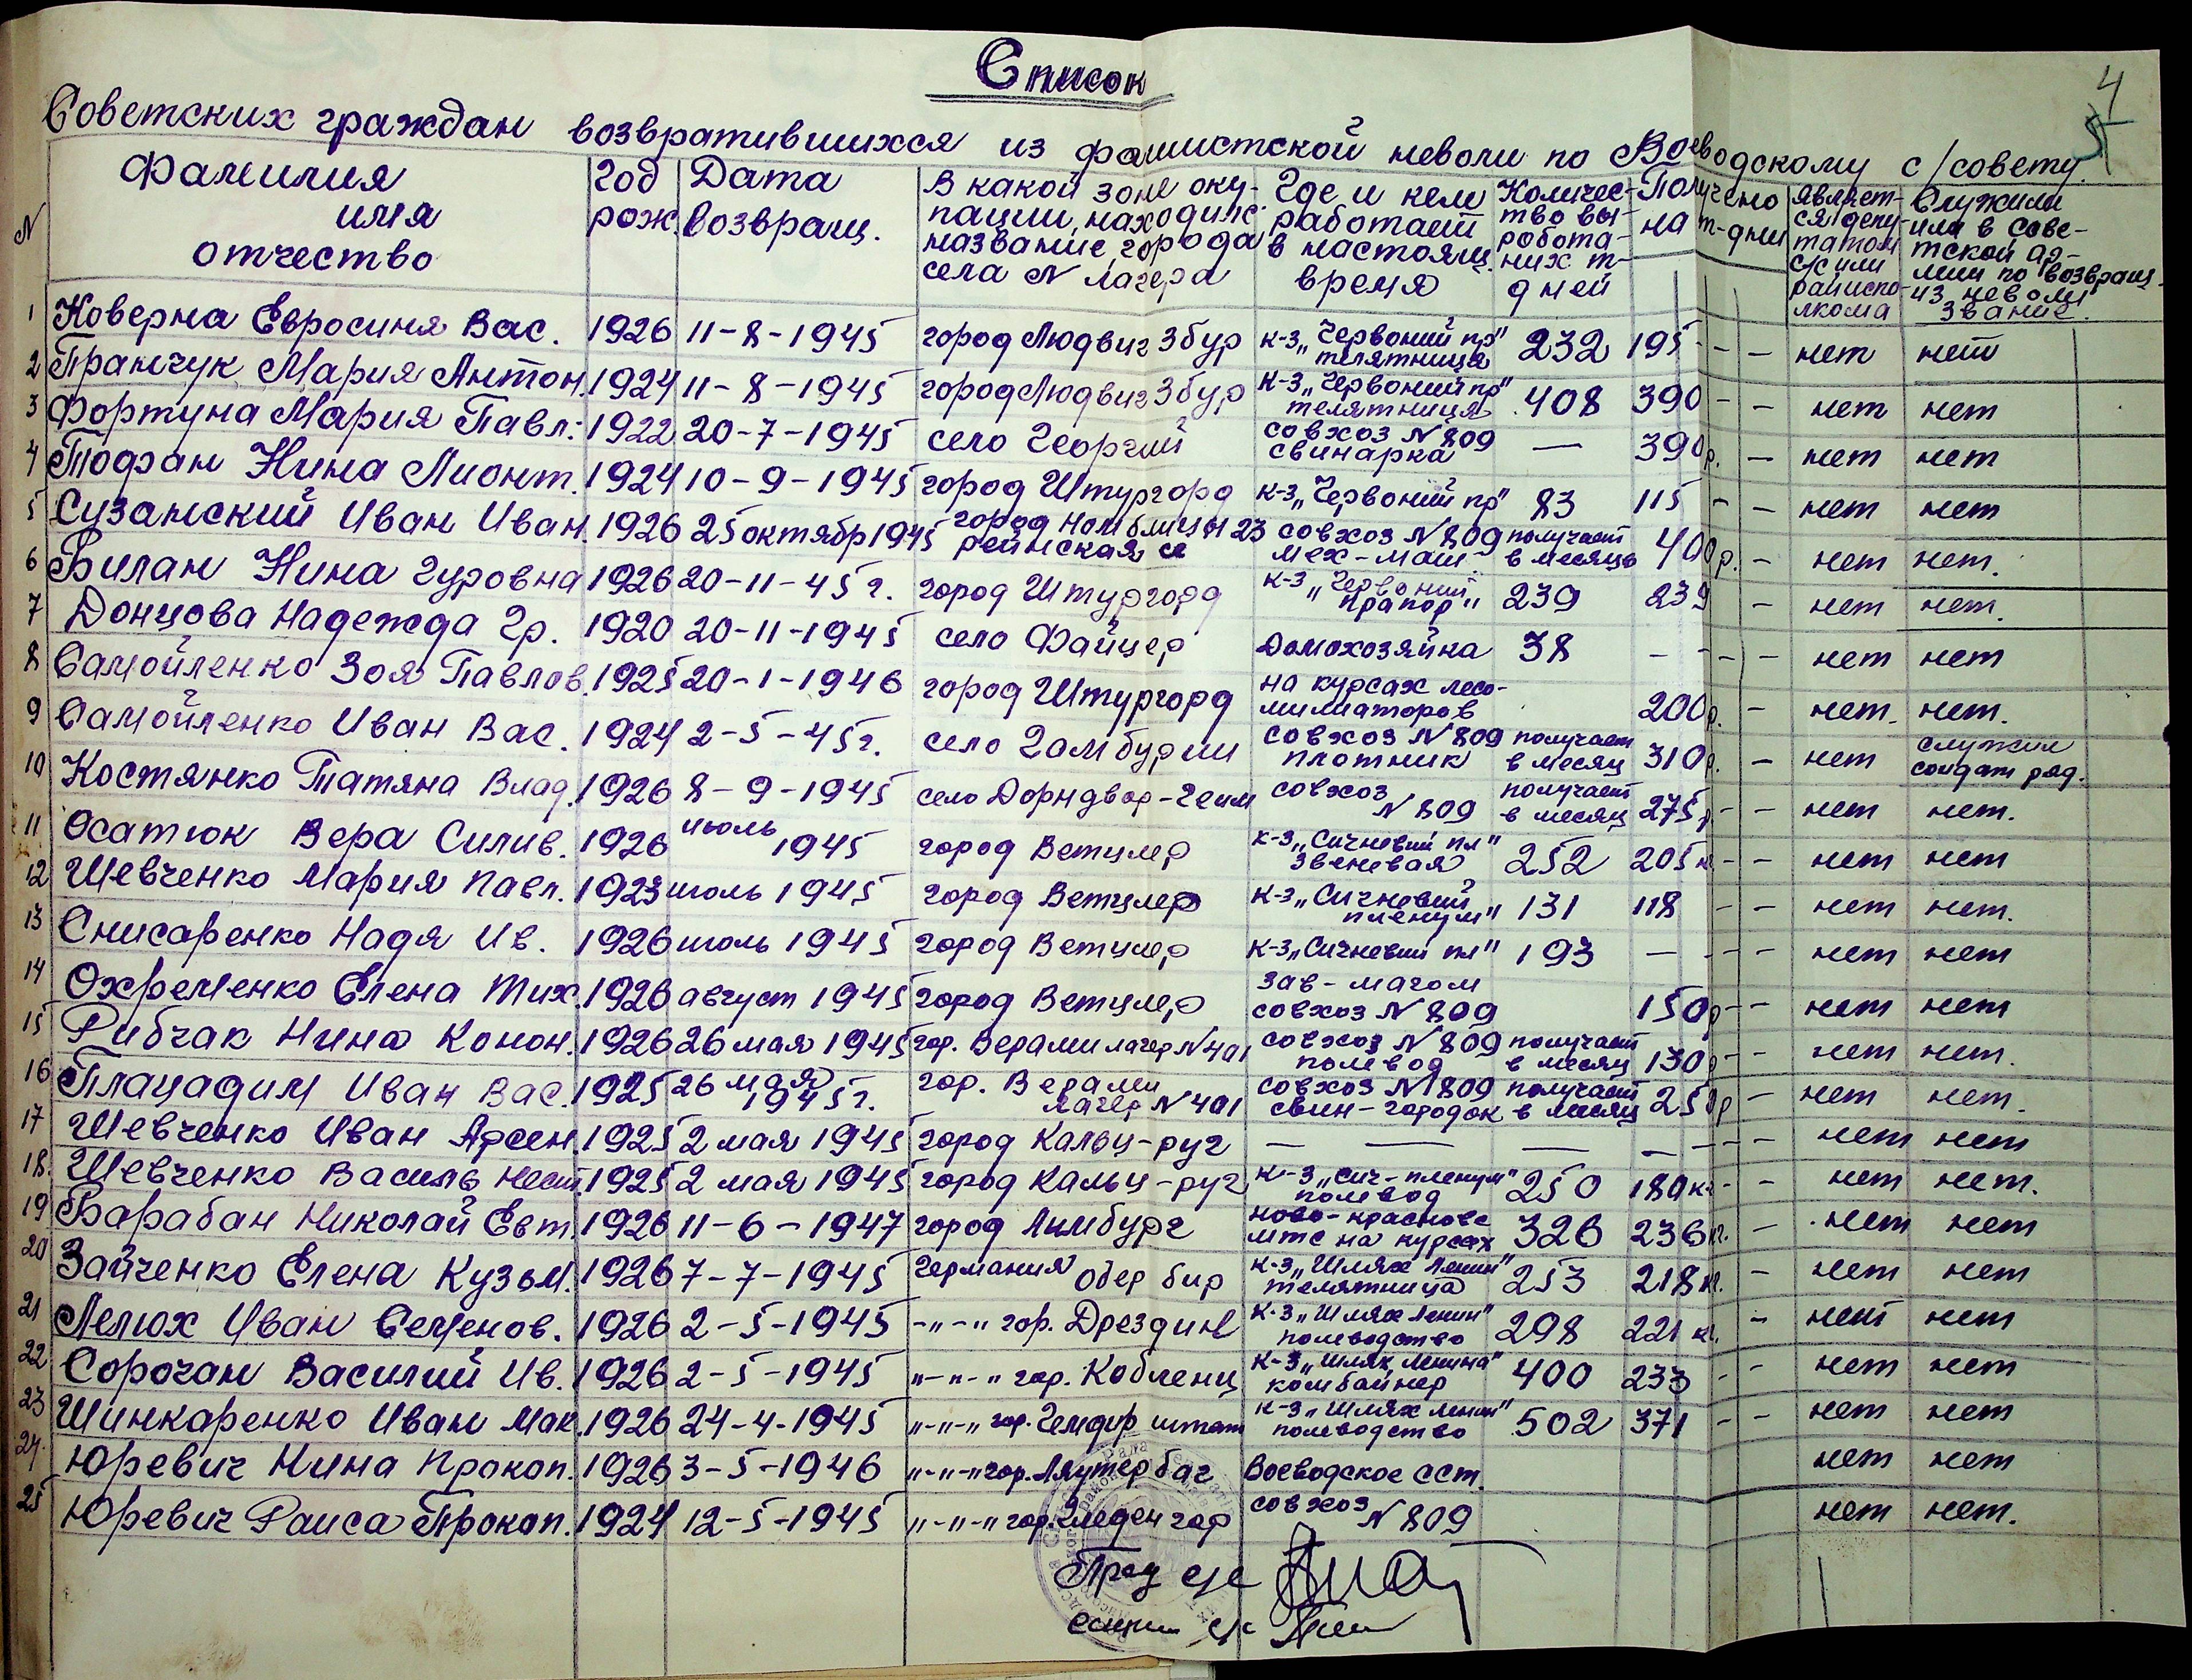 4
Список
Советских граждан возвратившихся из фашистской неволи по Воеводскому с/совету.
N Фамилия имя отчество Год рож. Дата возвращ. В какой зоне оку-пации, находилс. название, города села N лагера Где и кем работает в настоящ. время Количес-тво вы-робота-них т-дней Получено на т-дни Являет-ся депу-татом с/с или райиспо-лкома Служили или в Сове-тской ар-мии по возвращ. из неволи звание.
1 Коверна Евросиня Вас. 1926 11-8-1945 город Людвигзбур к-з „Червоний пр" телятница 232 195 - - нет нет
2 Пранчук Мария Антон. 1924 11-8-1945 город Людвигзбур к-з „Червоний пр" телятница 408 390 - - нет нет
3 Фортуна Мария Павл. 1922 20-7-1945 село Георгий совхоз N 809 свинарка — 390р. - нет нет
4 Тофан Нина Лионт. 1924 10-9-1945 город Штургорд к-з „Червоний пр" 83 115 - - нет нет
5 Сузанский Иван Иван. 1926 25 октябр 1945 город N 23 рейнская совхоз N 809 мех-маш. получает в месяць 400р. - нет нет.
6 Билан Нина Гуровна 1926 20-11-45г. город Штургорд к-з „Червоний прапор" 239 239 - нет нет.
7 Донцова Надежда Гр. 1920 20-11-1945 село Файцер Домохозяйка 38 - - - - нет нет
8 Самойленко Зоя Павлов. 1925 20-1-1946 город Штургорд на курсах лесо-милиаторов 200р. - нет. нет.
9 Самойленко Иван Вас. 1924 2-5-45г. село Гамбурги совхоз N 809 плотник получает в месяц 310р. - нет служил солдат ряд.
10 Костянко Татяна Влад. 1926 8-9-1945 село Дорндвор-Геим совхоз N 809 получает в месяц 275р - - нет нет.
11 Осатюк Вера Силив. 1926 июль 1945 город Ветцлер к-з „Сичневий пл" звеневая 252 205к - - нет нет
12 Шевченко Мария Павл. 1923 июль 1945 город Ветцлер к-з „Сичневий пленум" 131 118 - - нет нет.
13 Снисаренко Надя Ив. 1926 июль 1945 город Ветцлер к-з „Сичневий пл" 193 — - - - нет нет
14 Охременко Елена Тих. 1926 август 1945 город Ветцлер зав-магом совхоз N 809 150р - - нет нет
15 Рибчак Нина Конон. 1926 26 мая 1945 гор. Верами лагер N 401 совхоз N 809 полевод получает в месяц 130р - - нет нет.
16 Плацадим Иван Вас. 1925 26 мая 1945г. гор. Верами лагер N 401 совхоз N 809 свин-городок получает в месяц 250р - нет нет.
17 Шевченко Иван Арсен. 1925 2 мая 1945 город Кальц-руг — — — — - - нет нет
18. Шевченко Василь Нест. 1925 2 мая 1945 город Кальц-руг к-з „Сич-пленум" полевод 250 180кг - - нет нет.
19 Барабан Николай Евт. 1926 11-6-1947 город Лимбург ново-красное мтс на курсах 326 236кг. - нет нет
20 Зайченко Елена Кузьм. 1926 7-7-1945 Германия Обер бир к-з „Шлях Ленин" телятница 253 218кг. - нет нет
21 Лелюх Иван Семенов. 1926 2-5-1945 -"-" гор. Дрездин к-з „Шлях Ленин" полеводство 298 221 кг. - нет нет
22 Сорочан Василий Ив. 1926 2-5-1945 "-"-" гор. Кобленц к-з „Шлях Ленина" комбайнер 400 233 - нет нет
23 Шинкаренко Иван Мак. 1926 24-4-1945 "-"-" гор. Гемдир штат к-з „Шлях Ленин" полеводство 502 371 - - нет нет
24. Юревич Нина Прокоп. 1926 3-5-1946 "-"-" гор. Ляутербаг Воеводское ССТ. нет нет
25 Юревич Раиса Прокоп. 1924 12-5-1945 "-"-" гор. совхоз N 809 нет нет.
Пред с/с